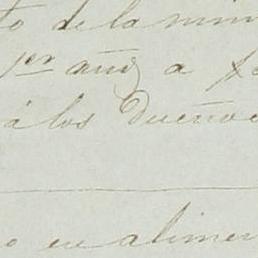 to de la min
1er año, a fo
á los dueños
o en alimen